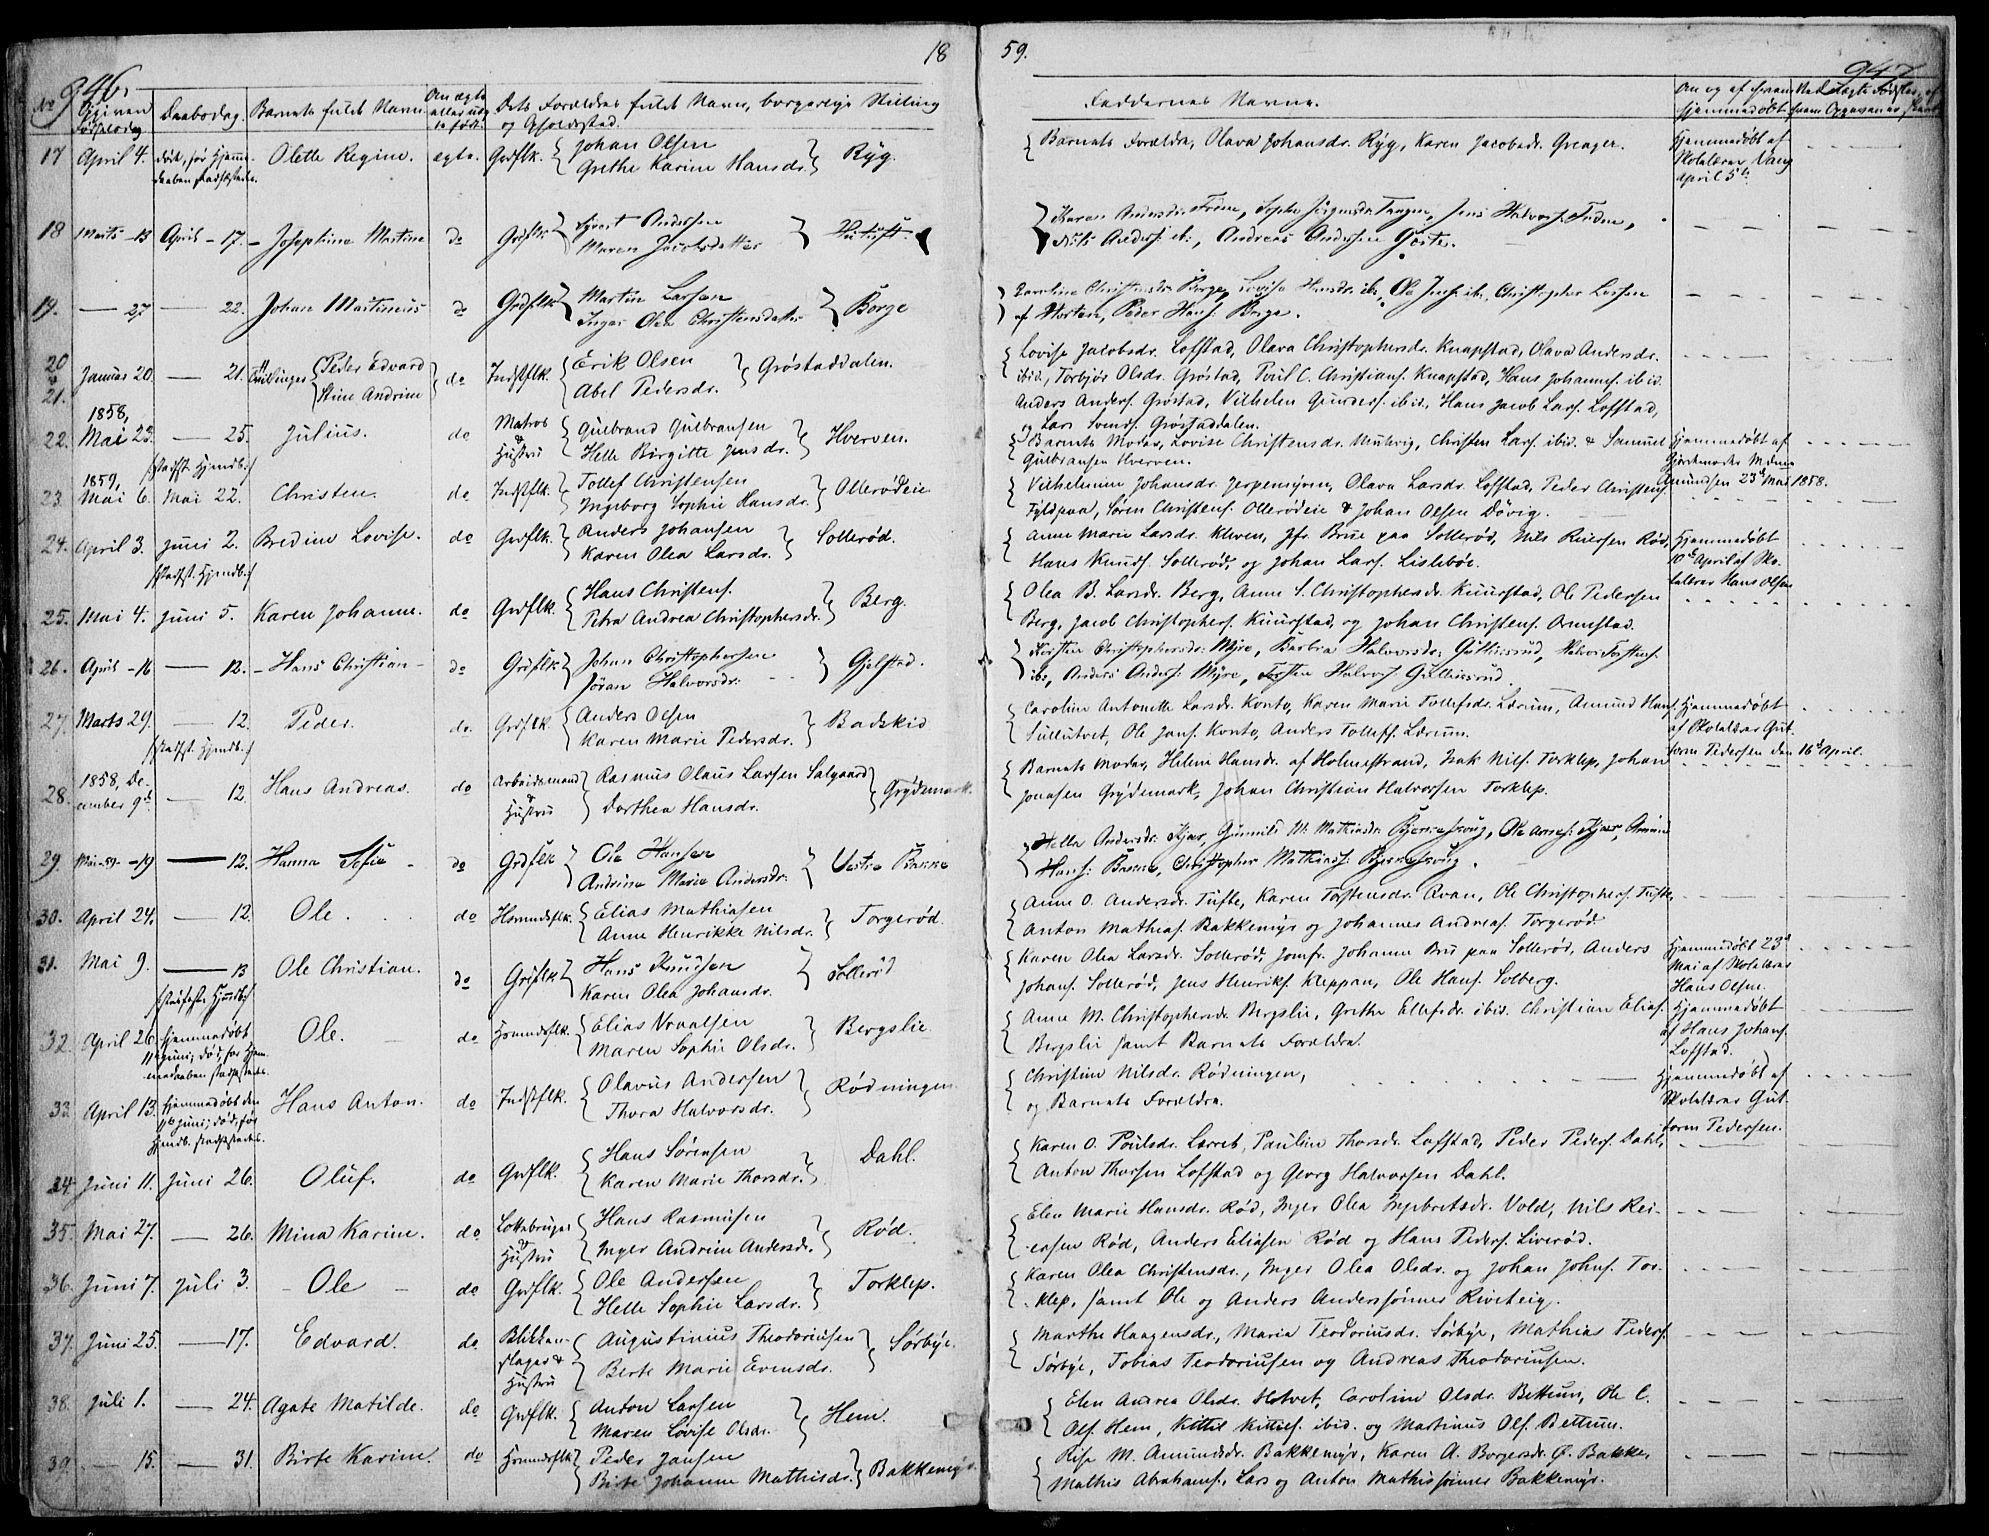 946.
18
59.
947
No
Opgiven Fødselsdag
Daabsdag.
Barnets fulde Navn.
Om ægte eller uægte født.
Dets Forældres fulde Navn, borgerlige Stilling og Opholdssted.
Faddernes Navne.
17 April 4. Død, før Hjemmedaaben stadfæstedes. Olette Regine. ægte. Grdflk. Johan Olsen
Grethe Karine Hansdr. Ryg.
Barnets Forældre, Olava Johansdr. Ryg, Karen Jacobsdr. Greager.
Hjemmedøbt af
Skolelærer Vang
April 5te
18 Marts - 13 April - 17. Josephine Martine do Grdflk. Sivert Andersen
Maren Jacobsdatter
Karen Andersdr.
19. — 27 — 22. Johan Martinius do Grdflk Martin Larsen
Inger Olea Christensdatter Borge
Ole Jens. ib., Christopher Larsen
Peder Hans. Borge.
20
21. Januar 20. — 21. Tvillinger Peder Edvard
Stine Andrine do Indstflk. Erik Olsen
Abel Pedersdr. Grøstaddalen.
Lovise Jacobsdr. Lofstad, Olava Christophersdr. Knapstad, Olava Andersdr.
ibid., Torbjør Olsdr. Grøstad, Poul C. Christians. Knapstad, Hans Johannes. ibid.
Anders Anders. Grøstad, Vilhelm Gunders. ibid., Hans Jacob Lars. Lofstad,
og Lars Svends. Grøstaddalen.
22. 1858, Mai 23. — 25. Julius. do Matros & Hustru Gulbrand Gulbransen
Helle Birgitte Jensdr. Hverven.
Barnets Moder, Lovise Christensdr. Muhrig, Christen Lars. ibid. & Samuel
Gulbransen Hverven.
Hjemmedøbt af
Gjordemoder
Amundsen 23d Mai 1858.
/stadf. Hjmdb./
23. 1859, Mai 6. Mai 22. Christen. do Indstflk. Tollef Christensen
Ingeborg Sophie Hansdr. Ollerødeie
Vilhelmine Johansdr. Jerpensyren, Olava Larsdr. Lofstad, Peder Christens.
Fyldpaa, Søren Christens. Ollerødeie & Johan Olsen Døvig.
24. April 3. Juni 2. Bredine Lovise. do Grdflk. Anders Johansen
Karen Olea Larsdr. Sollerød.
Anne Marie Larsdr. Kleven, Jfr. Brue paa Sollerød, Nils Reiersen Rød,
Hans Knuds. Sollerød, og Johan Lars. Lislebøe.
Hjemmedøbt
10de April af Skolelærer Hans Olsen
/stadf. Hjmdb./
25. Mai 4. Juni 5. Karen Johanne. do Grdflk. Hans Christens.
Petra Andrea Christophersdr. Berg.
Olea B. Larsdr. Berg, Anne S. Christophersdr. Kuurstad, Ole Pedersen
Berg, Jacob Christophers. Kuurstad, og Johan Christens. Ormestad.
26. April - 16 — 12. Hans Christian do Grdflk Johan Christophersen
Jøran Halvorsdr. Gjelstad.
Kirstine Christophersdr. Myre, Barbra Halvorsdr. Gullicsrud,
ib., Anders Anders. Myre, Torsten Halvors. Gullicsrud
27. Marts 29. — 12. Peder. do. Grdflk. Anders Olsen
Karen Marie Pedersdr. Badskid
Caroline Antonette Larsdr. Konto, Karen Marie Tollefsdr. Lærum, Amund Hans.
Sullutvet, Ole Jans. Konto, Anders Tollefs. Lærum.
Hjemmedøbt
af Skolelærer Gut-
torm Pedersen den 16d April.
/stadf. Hjmdb./
28. 1858, December 9d. — 12. Hans Andreas. do Arbeidsmand & Hustru Rasmus Olaus Larsen Salgaard
Dorthea Hansdr. Grydemark.
Barnets Moder, Helene Hansdr. af Holmestrand, Isak Nils. Torklep, Johan
Jonasen Grydemark, Johan Christian Halvorsen Torklep.
29. Mai 59 - 19 — 12. Hanna Sofie do Grdflk Ole Hansen
Andrine Marie Andersdr. Vestre Berne
Helle Andersdr. Kjær, Gunnild M. Mathisdr.
Hans. Berne, Christopher Mathias.
30. April 24. — 12. Ole. do Hsmndsflk. Elias Mathiasen
Anne Henrikke Nilsdr. Torgerød.
Anne O. Andersdr. Tufte, Karen Torstensdr. Qvan, Ole Christophers. Tufte,
Anton Mathias. Bakkemyr og Johannes Andreas. Torgerød.
31. Mai 9. — 13 Ole Christian. do Grdflk Hans Knudsen
Karen Olea Johansdr. Sollerød
Karen Olea Larsdr. Sollerød, Jomfr. Johanne Bru paa Sollerød, Anders
Johans. Sollerød, Jens Henriks. Kleppan, Ole Hans. Solberg.
Hjemmedøbt 23d
Mai af Skolelærer
Hans Olsen.
32. April 26. Hjemmedøbt
11te Juni; død, før Hjem-
medaaben stadfæstedes. Ole. do Hsmndsflk. Elias Vraalsen
Maren Sophie Olsdr. Bergslie.
Anne M. Christophersdr. Bergslie, Grethe Ellefsdr. ibid. Christian Elias.
Bergslie samt Barnets Forældre.
Hjemmedøbt
af Hans Johans.
Lofstad.
33. April 13. Hjemmedøbt den
11te Juni; død, før
Hjmdb. stadfæstedes. Hans Anton. do Indstflk. Olavus Andersen
Thora Halvorsdr. Rødningen.
Christine Nilsdr. Rødningen,
og Barnets Forældre.
Hjemmedøbt af
Skolelærer Gut-
torm Pedersen.
34. Juni 11. Juni 26. Oluf. do Grdflk. Hans Sørensen
Karen Marie Thorsdr. Dahl.
Karen O. Poulsdr. Lerret, Pauline Thorsdr. Lofstad, Peder Peders. Dahl,
Anton Thorsen Lofstad og Georg Halvorsen Dahl.
35. Mai 27. — 26. Mina Karine. do Løkkebruger & Hustru Hans Rasmusen
Inger Andrine Andersdr. Rød.
Elen Marie Hansdr. Rød, Inger Olea Ingebretsdr. Vold, Nils Rei-
ersen Rød, Anders Eliasen Rød og Hans Peders. Liverød.
36. Juni 7. Juli 3. Ole do Grdflk. Ole Andersen
Helle Sophie Larsdr. Torklep.
Karen Olea Christensdr., Inger Olea Olsdr. og Johan Johns. Tor-
klep, samt Ole og Anders Anderssønner Riveteig.
37. Juni 25. — 17. Edvard. do Blikkenslager & Hustru Augustinius Theodoriusen
Berte Marie Evensdr. Sørbye.
Marthe Haagensdr., Maria Teodoriusdr. Sørbye, Mathias Peders.
Sørbye, Tobias Teodoriusen og Andreas Theodoriusen.
38. Juli 1. — 24. Agate Matilde. do Grdflk. Anton Larsen
Maren Lovise Olsdr. Hem.
Elen Andrea Olsdr. Holvet, Caroline Olsdr. Bettum, Ole C.
Ols. Hem, Kittil Kittils. ibid. og Martinus Ols. Bettum.
39. — 15. — 31. Birte Karine. do Hsmndsflk Peder Jansen
Birte Johanne Mathisdr. Bakkemyr.
Lise M. Amundsdr. Bakkemyr, Karen A. Borgersdr. Ø. Bakke,
Mathis Abrahams., Lars og Anton Mathissønner Bakkemyr.